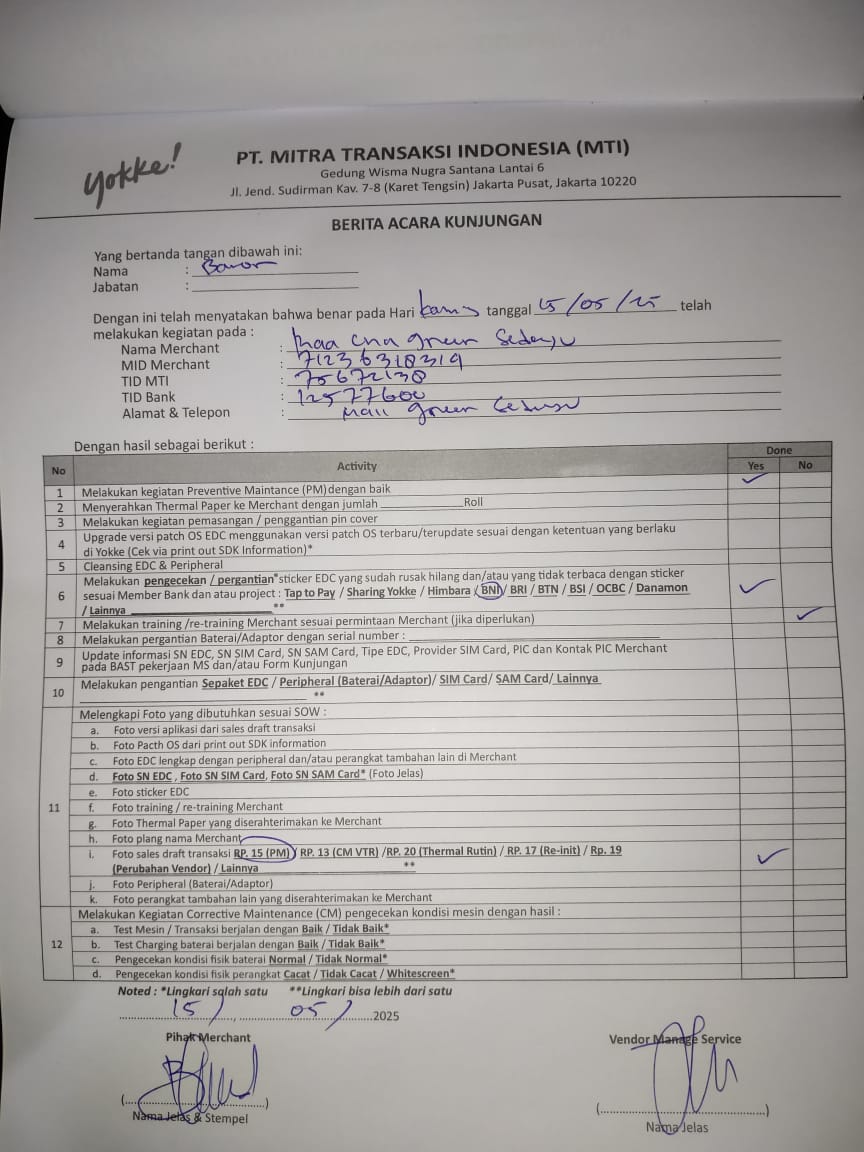 yokke!
PT. MITRA TRANSAKSI INDONESIA (MTI)
Gedung Wisma Nugra Santana Lantai 6
Jl. Jend. Sudirman Kav. 7-8 (Karet Tengsin) Jakarta Pusat, Jakarta 10220
BERITA ACARA KUNJUNGAN
Yang bertanda tangan dibawah ini:
Nama :
Jabatan :
Dengan ini telah menyatakan bahwa benar pada Hari kamis tanggal 15/05/25 telah
melakukan kegiatan pada :
Nama Merchant : green Sedayu
MID Merchant : 71236318319
TID MTI : 75672138
TID Bank : 12577600
Alamat & Telepon : Mall green Sedayu
Dengan hasil sebagai berikut :
No Activity Done
Yes No
1 Melakukan kegiatan Preventive Maintance (PM)dengan baik
2 Menyerahkan Thermal Paper ke Merchant dengan jumlah ____________Roll
3 Melakukan kegiatan pemasangan / penggantian pin cover
4 Upgrade versi patch OS EDC menggunakan versi patch OS terbaru/terupdate sesuai dengan ketentuan yang berlaku
di Yokke (Cek via print out SDK Information)*
5 Cleansing EDC & Peripheral
6 Melakukan pengecekan / pergantian*sticker EDC yang sudah rusak hilang dan/atau yang tidak terbaca dengan sticker
sesuai Member Bank dan atau project : Tap to Pay / Sharing Yokke / Himbara / BNI / BRI / BTN / BSI / OCBC / Danamon
/ Lainnya ____________________**
7 Melakukan training /re-training Merchant sesuai permintaan Merchant (jika diperlukan)
8 Melakukan pergantian Baterai/Adaptor dengan serial number : ____________________
9 Update informasi SN EDC, SN SIM Card, SN SAM Card, Tipe EDC, Provider SIM Card, PIC dan Kontak PIC Merchant
pada BAST pekerjaan MS dan/atau Form Kunjungan
10 Melakukan pengantian Sepaket EDC / Peripheral (Baterai/Adaptor)/ SIM Card/ SAM Card/ Lainnya
____________________ **
11 Melengkapi Foto yang dibutuhkan sesuai SOW :
a. Foto versi aplikasi dari sales draft transaksi
b. Foto Pacth OS dari print out SDK information
c. Foto EDC lengkap dengan peripheral dan/atau perangkat tambahan lain di Merchant
d. Foto SN EDC , Foto SN SIM Card, Foto SN SAM Card* (Foto Jelas)
e. Foto sticker EDC
f. Foto training / re-training Merchant
g. Foto Thermal Paper yang diserahterimakan ke Merchant
h. Foto plang nama Merchant
i. Foto sales draft transaksi RP. 15 (PM) / RP. 13 (CM VTR) /RP. 20 (Thermal Rutin) / RP. 17 (Re-init) / Rp. 19
(Perubahan Vendor) / Lainnya ____________________**
j. Foto Peripheral (Baterai/Adaptor)
k. Foto perangkat tambahan lain yang diserahterimakan ke Merchant
12 Melakukan Kegiatan Corrective Maintenance (CM) pengecekan kondisi mesin dengan hasil :
a. Test Mesin / Transaksi berjalan dengan Baik / Tidak Baik*
b. Test Charging baterai berjalan dengan Baik / Tidak Baik*
c. Pengecekan kondisi fisik baterai Normal / Tidak Normal*
d. Pengecekan kondisi fisik perangkat Cacat / Tidak Cacat / Whitescreen*
Noted : *Lingkari salah satu **Lingkari bisa lebih dari satu
15 / 05 / 2025
Pihak Merchant Vendor Manage Service
(....................) (....................)
Nama Jelas & Stempel Nama Jelas